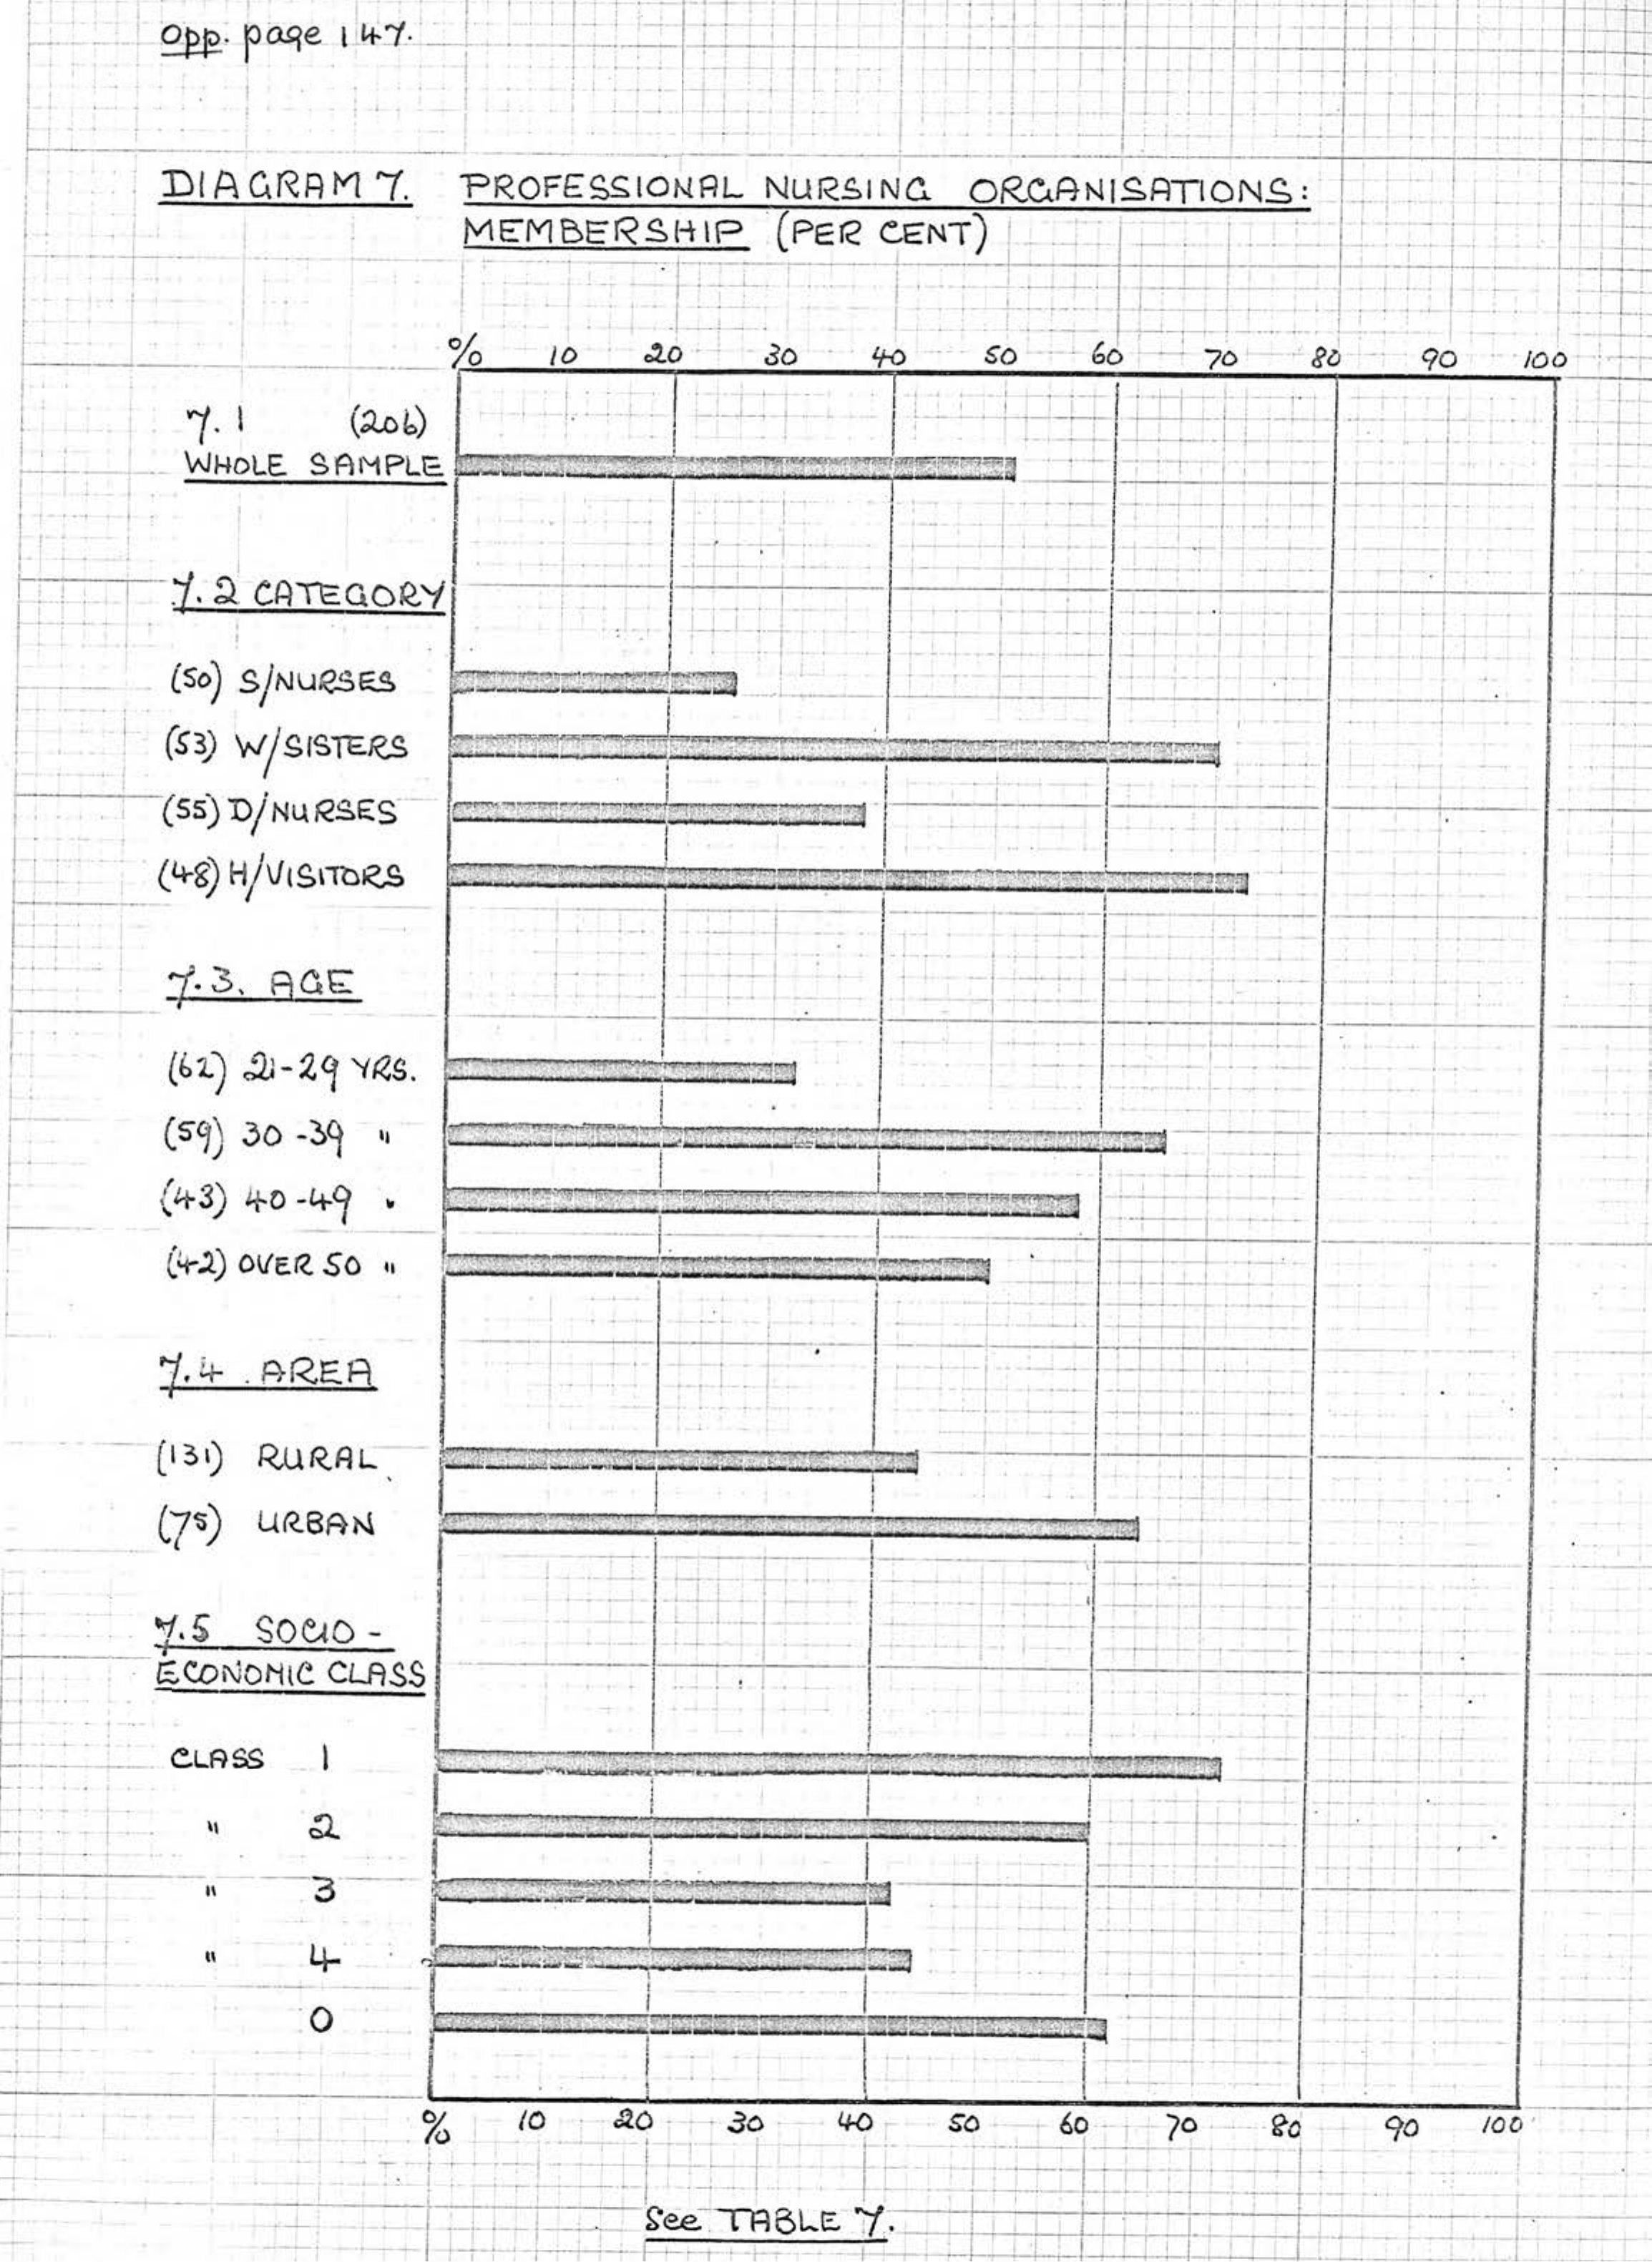 Opp. page 147.
DIAGRAM 7. PROFESSIONAL NURSING ORGANISATIONS:
MEMBERSHIP (PER CENT)
% 10 20 30 40 50 60 70 80 90 100
7.1 (206)
WHOLE SAMPLE
7.2 CATEGORY
(50) S/NURSES
(53) W/SISTERS
(55) D/NURSES
(48) H/VISITORS
7.3. AGE
(62) 21-29 YRS.
(59) 30-39 "
(43) 40-49 "
(42) OVER 50 "
7.4 AREA
(131) RURAL
(75) URBAN
7.5 SOCIO-
ECONOMIC CLASS
CLASS 1
" 2
" 3
" 4
0
% 10 20 30 40 50 60 70 80 90 100
See TABLE 7.